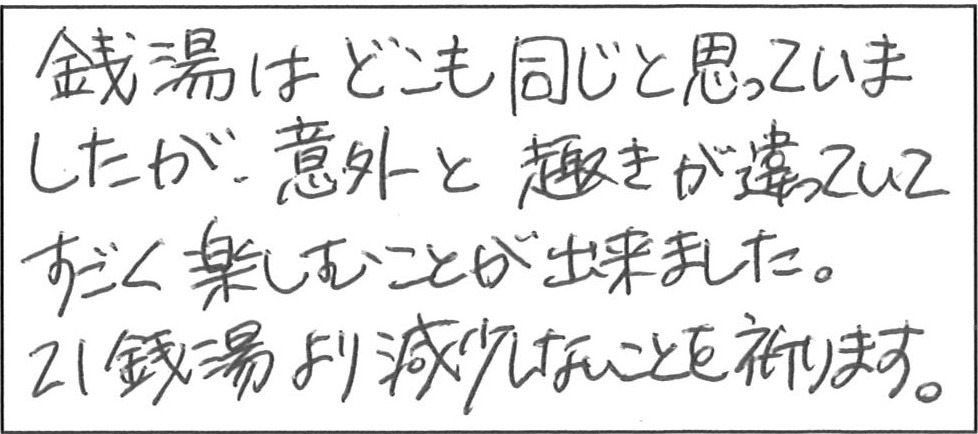 銭湯はどこも同じと思っていま
したが、意外と趣きが違っていて
すごく楽しむことが出来ました。
21銭湯より減少しないことを祈ります。